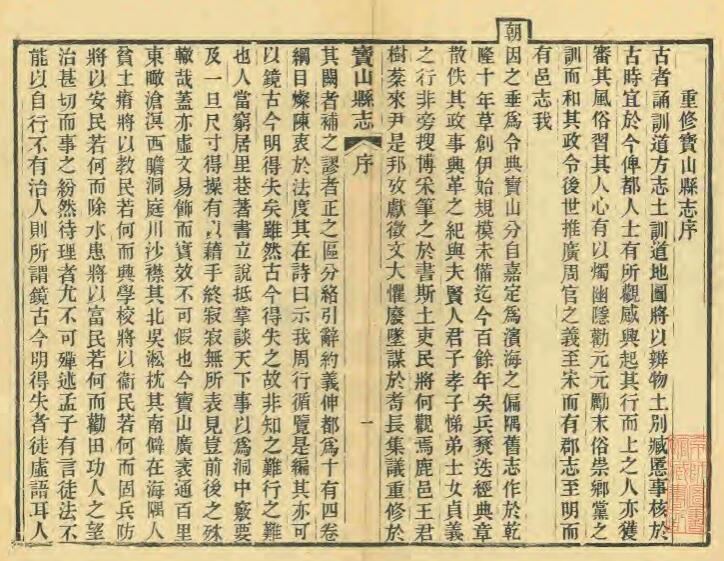 重修寶山縣志序
古者誦訓道方志土訓道地圖將以辨物土別臧慝事核於
古時宜於今俾都人士有所觀感興起其行而上之人亦獲
審其風俗習其人心有以燭幽隱勸元元勵末俗崇鄉黨之
訓而和其政令後世推廣周官之義至宋而有郡志至明而
有邑志我
朝因之垂為令典寶山分自嘉定為濱海之偏隅舊志作於乾
隆十年草創伊始規模未備迄今百餘年矣兵燹迭經典章
散佚其政事興革之紀與夫賢人君子孝子悌弟士女貞義
之行非旁搜博采筆之於書斯土吏民將何觀焉鹿邑王君
樹棻來尹是邦攷獻徵文大懼廢墜謀於耆長集議重修於
寶山縣志
序
一
其闕者補之謬者正之區分綹引辭約義伸都為十有四卷
綱目燦陳衷於法度其在詩曰示我周行循覽是編其亦可
以鏡古今明得失矣雖然古今得失之故非知之難行之難
也人當窮居里巷著書立說抵掌談天下事以為洞中竅要
及一旦尺寸得操有以藉手終寂寂無所表見豈前後之殊
轍哉蓋亦虛文易飾而實效不可假也今寶山廣袤通百里
東瞰滄溟西瞻洞庭川沙襟其北吳淞枕其南僻在海隅人
貧土瘠將以教民若何而興學校將以衞民若何而固兵防
將以安民若何而除水患將以富民若何而勸田功人之望
治甚切而事之紛然待理者尤不可殫述孟子有言徒法不
能以自行不有治人則所謂鏡古今明得失者徒虛語耳人